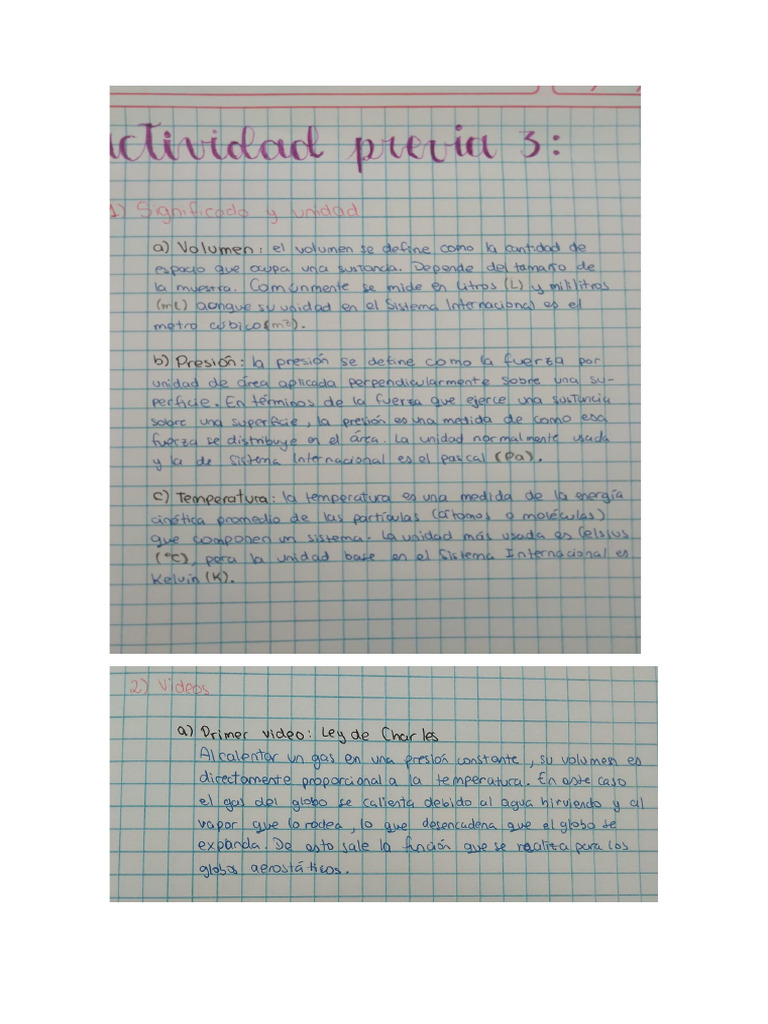 Actividad previa 3:
1) Significado y unidad
a) Volumen: el volumen se define como la cantidad de
espacio que ocupa una sustancia. Depende del tamaño de
la muestra. Comúnmente se mide en Litros (L) y mililitros
(mL) aonque su unidad en el Sistema Internacional es el
metro cúbico (m³).
b) Presión: la presión se define como la fuerza por
unidad de área aplicada perpendicularmente sobre una su-
perficie. En términos de la fuerza que ejerce una sustancia
sobre una superficie, la presión es una medida de como esa
fuerza se distribuye en el área. La unidad normalmente usada
y la de Sistema Internacional es el pascal (Pa).
c) Temperatura: la temperatura es una medida de la energía
cinética promedio de las partículas (átomos o moléculas)
que componen un sistema. La unidad más usada es Celsius
(°C), pero la unidad base en el Sistema Internacional es
Kelvin (K).
2) Videos
a) Primer video: Ley de Charles
Al calentar un gas en una presión constante, su volumen es
directamente proporcional a la temperatura. En este caso
el gas del globo se calienta debido al agua hirviendo y al
vapor que lo rodea, lo que desencadena que el globo se
expanda. De esto sale la función que se realiza para los
globos aerostáticos.